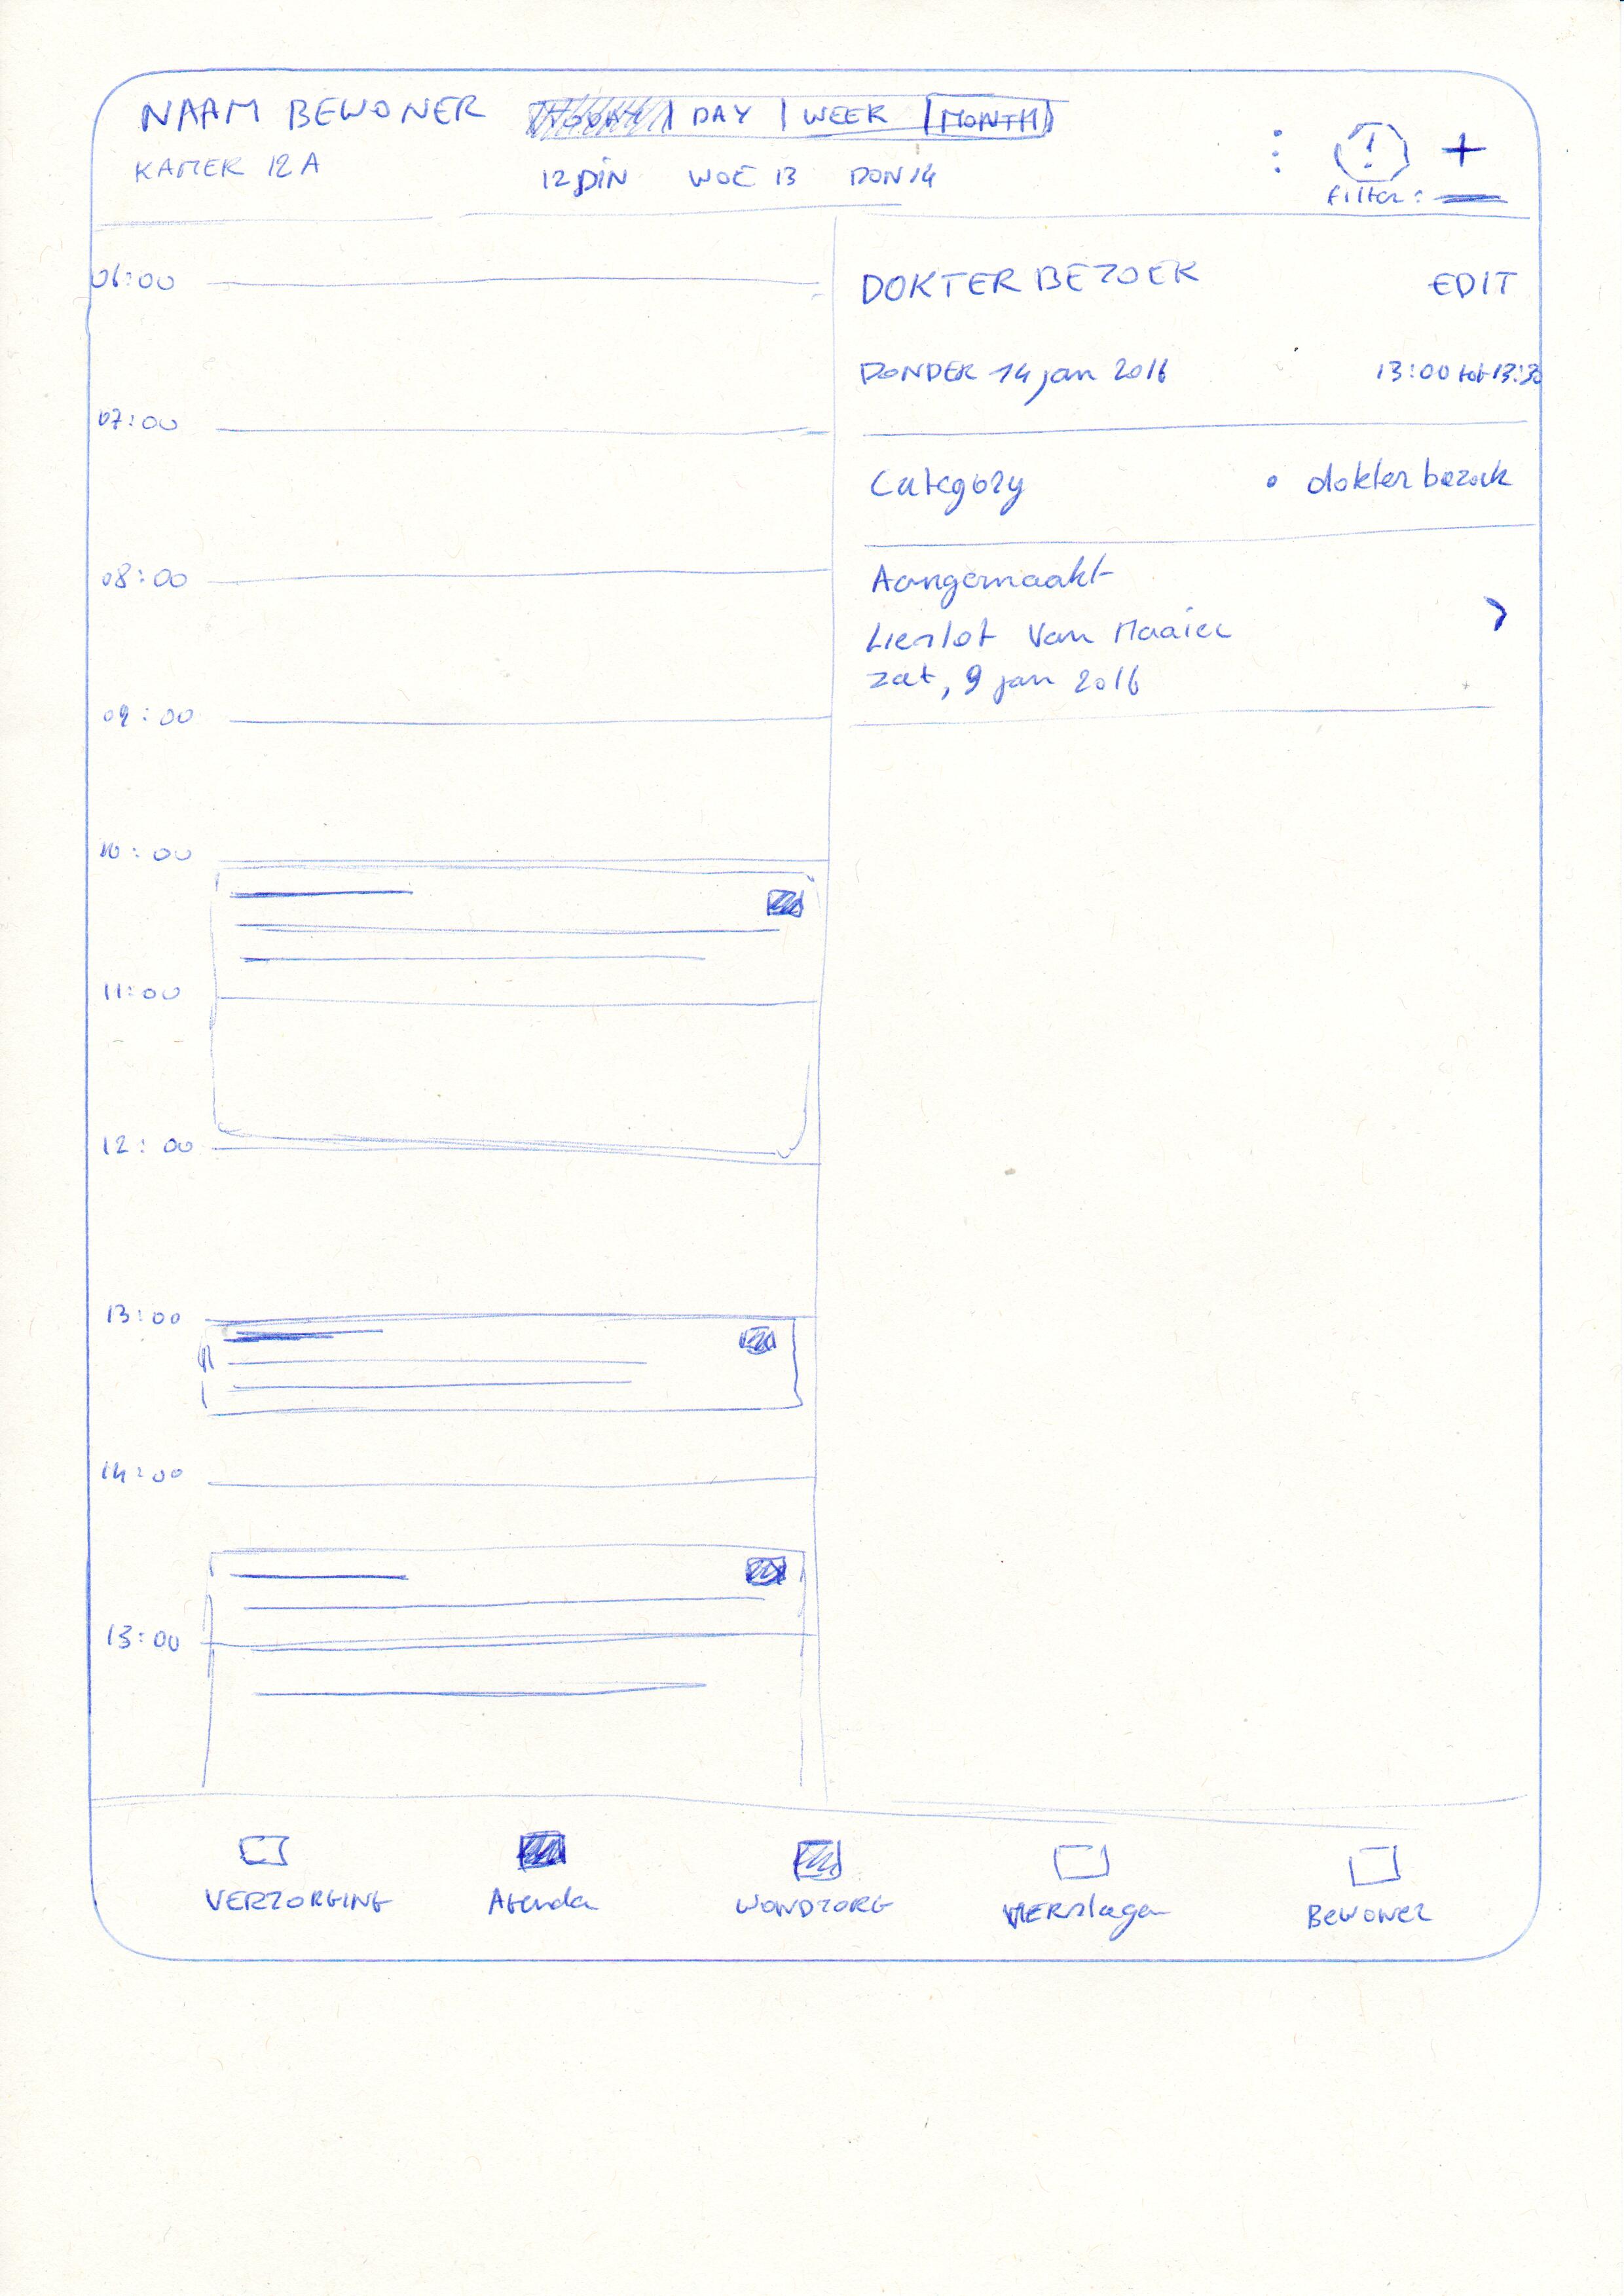 NAAM BEWONER
TODAY | DAY | WEEK | MONTH
KAMER 12 A
12 DIN WOE 13 DON 14
!
+
filter:
06:00
07:00
08:00
09:00
10:00
11:00
12:00
13:00
14:00
13:00
DOKTER BEZOEK EDIT
DONDER 14 jan 2016 13:00 tot 13:30
Category • dokter bezoek
Aangemaakt
Lieslot Van Maaier
zat, 9 jan 2016
>
VERZORGING Agenda WONDZORG VERslagen BEWONER